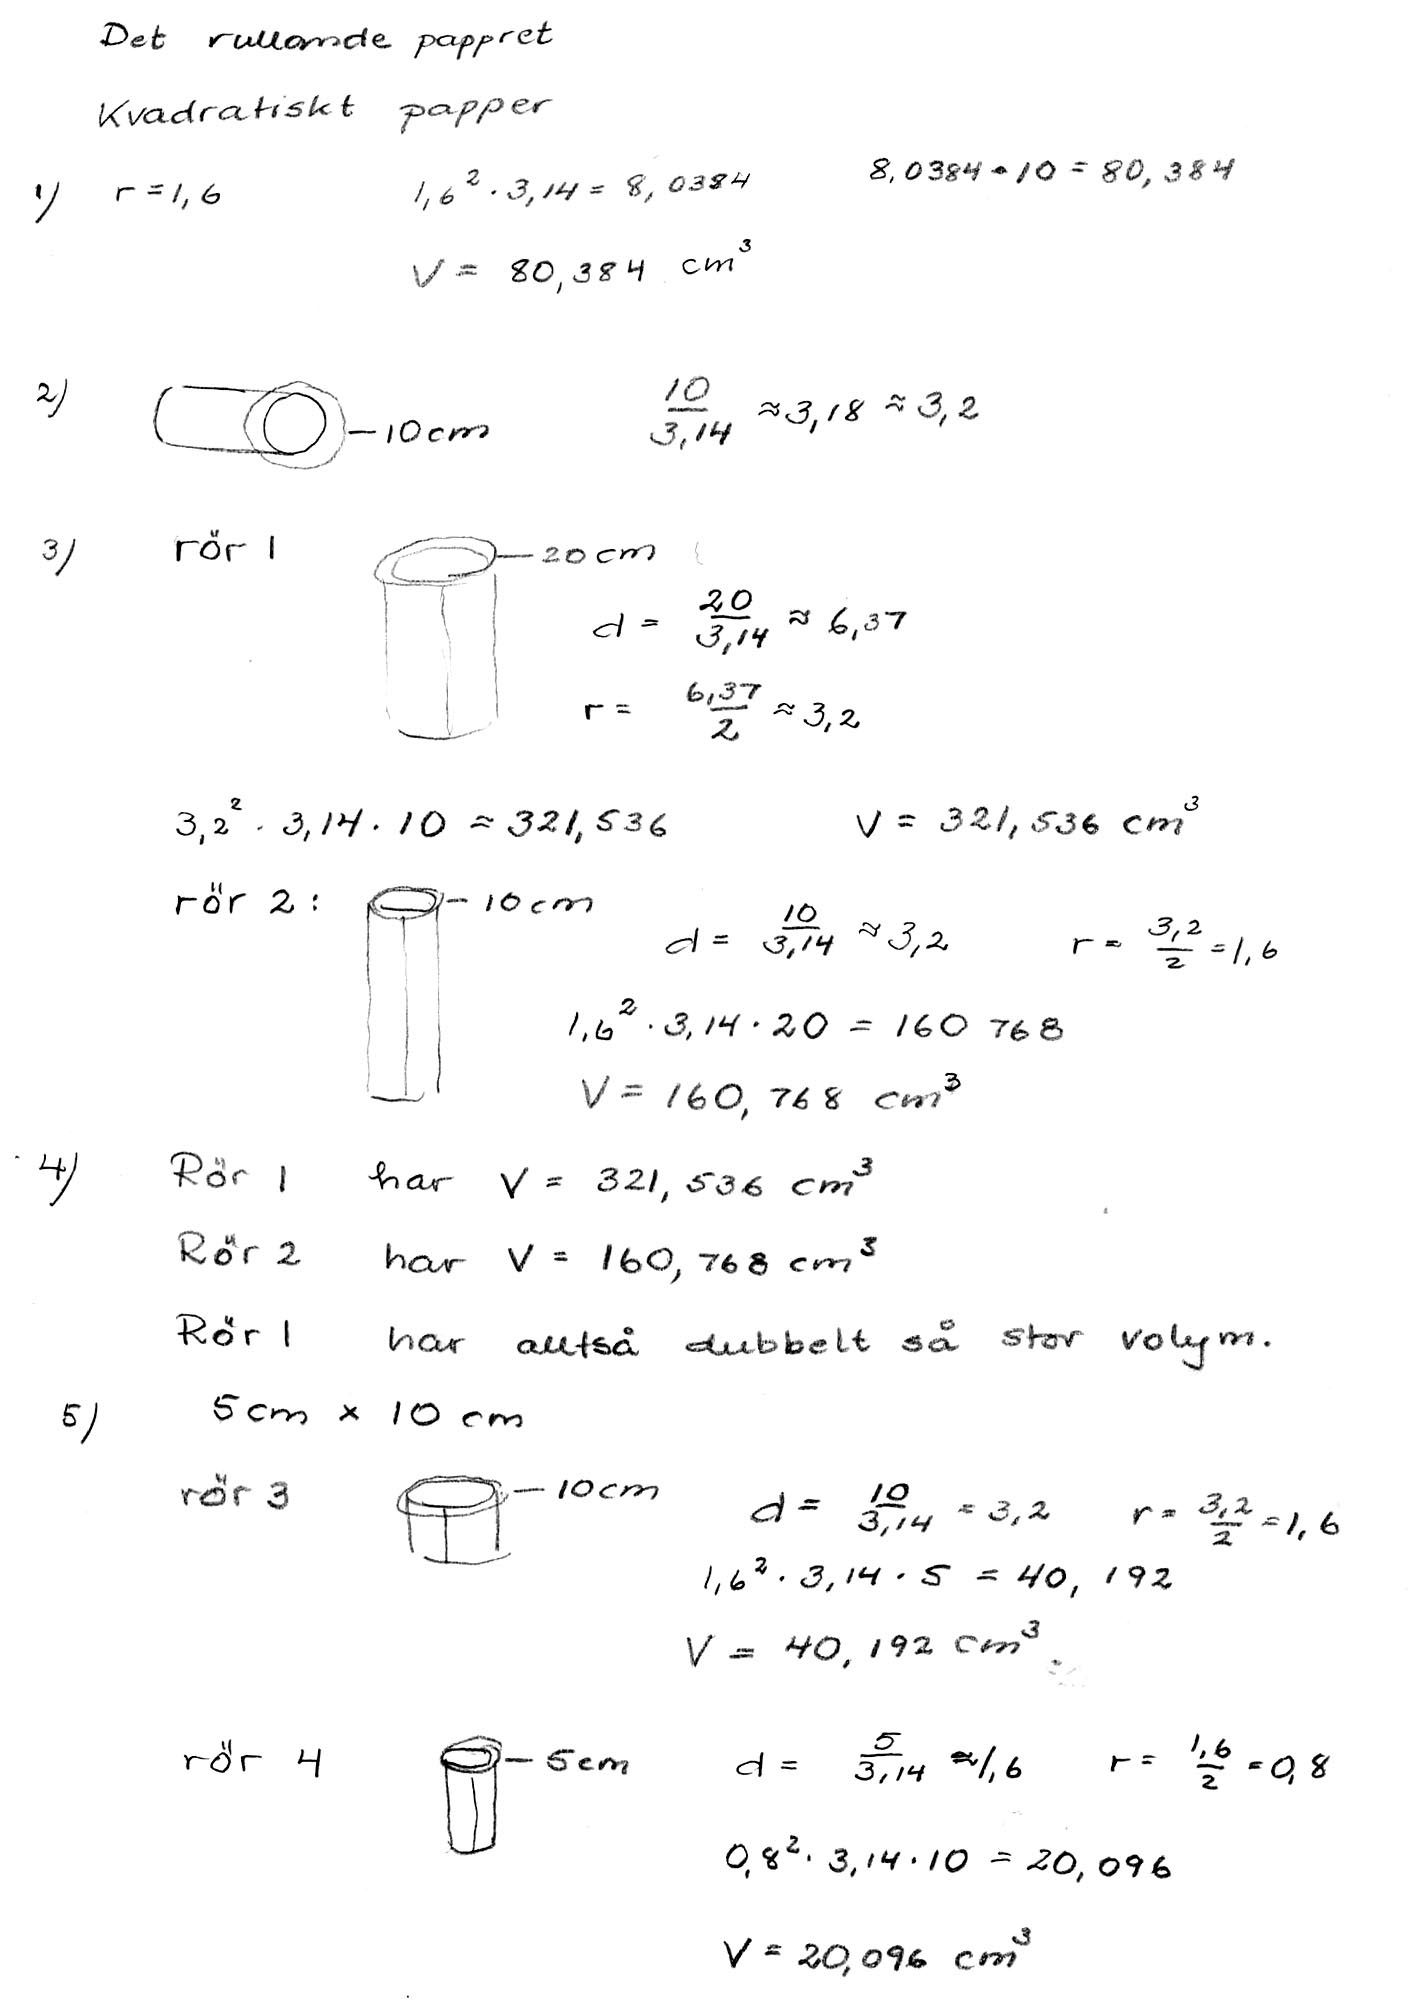 Det rullande pappret
Kvadratiskt papper
1) r = 1,6 1,6² · 3,14 = 8,0384 8,0384 · 10 = 80,384
V = 80,384 cm³
2) – 10 cm 10/3,14 ≈ 3,18 ≈ 3,2
3) rör 1 – 20 cm
d = 20/3,14 ≈ 6,37
r = 6,37/2 ≈ 3,2
3,2² · 3,14 · 10 ≈ 321,536 V = 321,536 cm³
rör 2: – 10 cm d = 10/3,14 ≈ 3,2 r = 3,2/2 = 1,6
1,6² · 3,14 · 20 = 160 768
V = 160,768 cm³
4) Rör 1 har V = 321,536 cm³
Rör 2 har V = 160,768 cm³
Rör 1 har alltså dubbelt så stor volym.
5) 5 cm × 10 cm
rör 3 – 10 cm d = 10/3,14 = 3,2 r = 3,2/2 = 1,6
1,6² · 3,14 · 5 = 40,192
V = 40,192 cm³.
rör 4 – 5 cm d = 5/3,14 ≈ 1,6 r = 1,6/2 = 0,8
0,8² · 3,14 · 10 = 20,096
V = 20,096 cm³